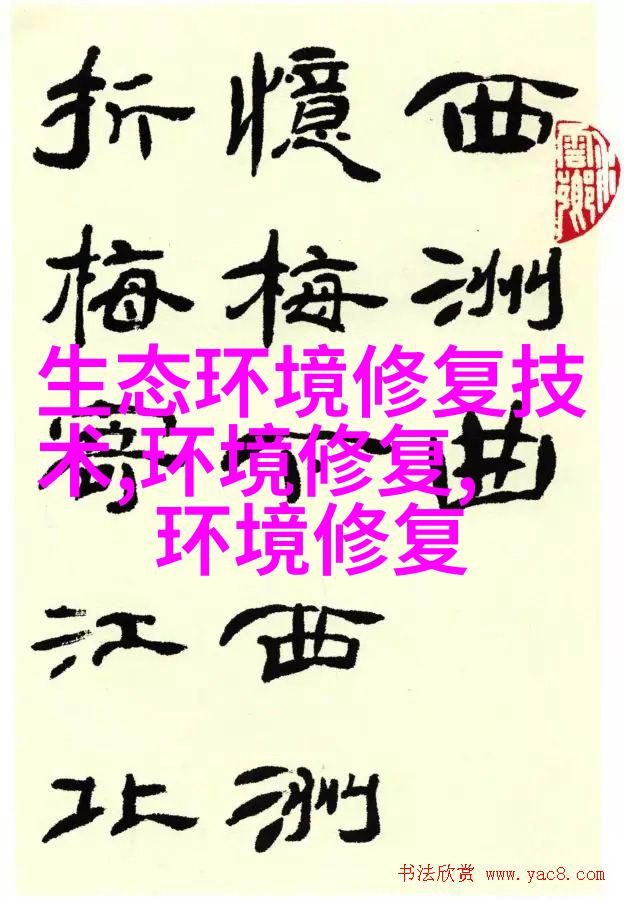 西洲曲
憶梅下西洲
折梅寄江北
生态环境修复技
术,环境修复,
环境修复
书法欣赏 www.yac8.com